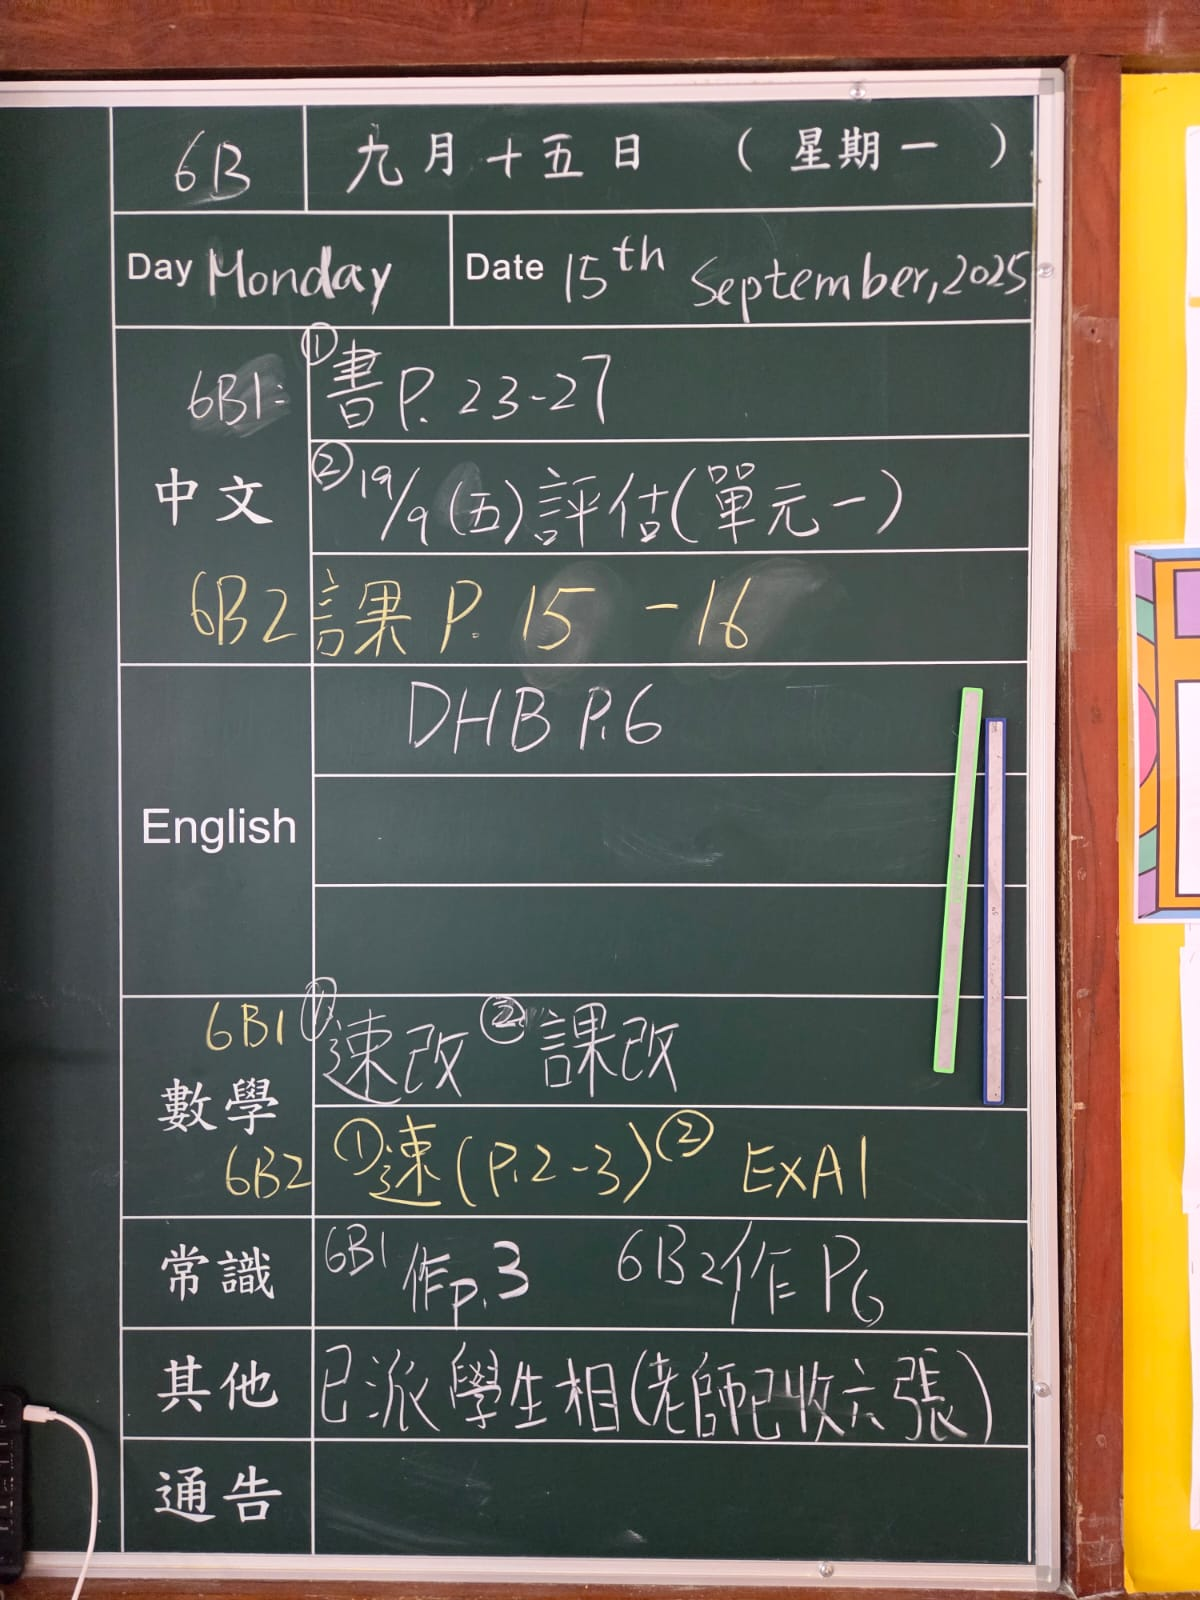 6B 九月十五日 （星期一）
Day Monday Date 15th September, 2025
6B1: ①書P. 23-27
中文 ②19/9(五)評估(單元一)
6B2 課 P. 15 - 16
DHB P.6
English
6B1 ①速改 ②課改
數學
6B2 ①速(P.2-3) ② EXA1
常識 6B1 作p.3 6B2作P6
其他 已派學生相(老師已收六張)
通告